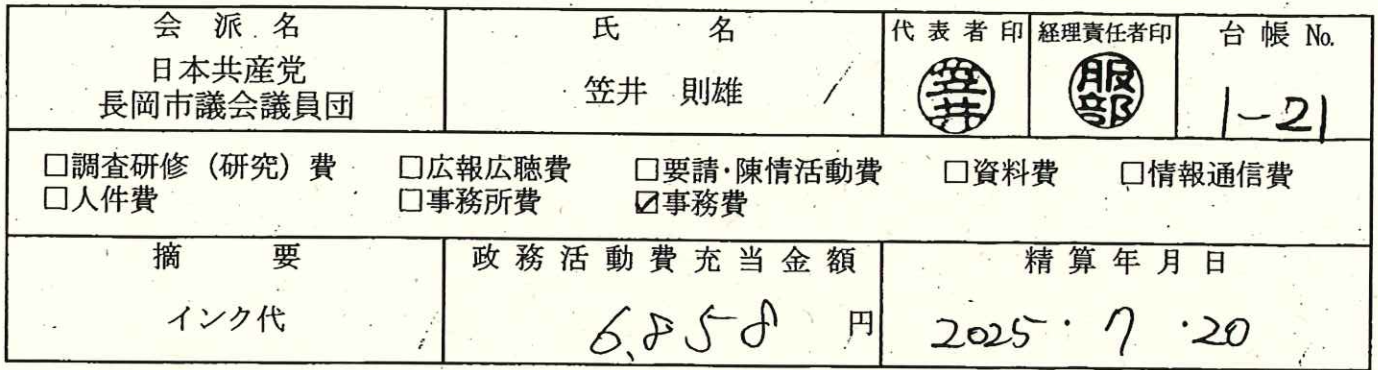 会派名 氏名 代表者印 経理責任者印 台帳No.
日本共産党
長岡市議会議員団
笠井 則雄
笠井
服部
1-21
□調査研修（研究）費 □広報広聴費 □要請・陳情活動費 □資料費 □情報通信費
□人件費 □事務所費 ☑事務費
摘要 政務活動費充当金額 精算年月日
インク代 6,858 円 2025・7・20